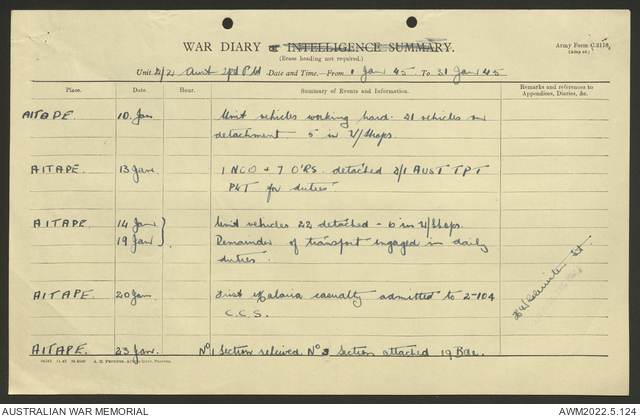 WAR DIARY or INTELLIGENCE SUMMARY.
(Erase heading not required.)
Army Form C.2118
Unit 2/2 Aust Date and Time—From 1 Jan 45. To 31 Jan 45
Place. Date. Hour. Summary of Events and Information. Remarks and references to Appendices, Diaries, &c.
AITAPE. 10 Jan Unit vehicles working hard. 21 vehicles on
detachment. 5 in W/Shops.
AITAPE. 13 Jan 1 NCO + 7 O'RS. detached 2/1 AUST TPT
PLT for duties
AITAPE. 14 Jan Unit vehicles 22 detached - 6 in W/Shops.
19 Jan Remainder of transport engaged in daily
duties.
AITAPE. 20 Jan First Malaria casualty admitted to 2-104
C.C.S.
AITAPE. 23 Jan. No 1 Section relieved No 3 Section attached 19 Bde.
AUSTRALIAN WAR MEMORIAL
AWM2022.5.124